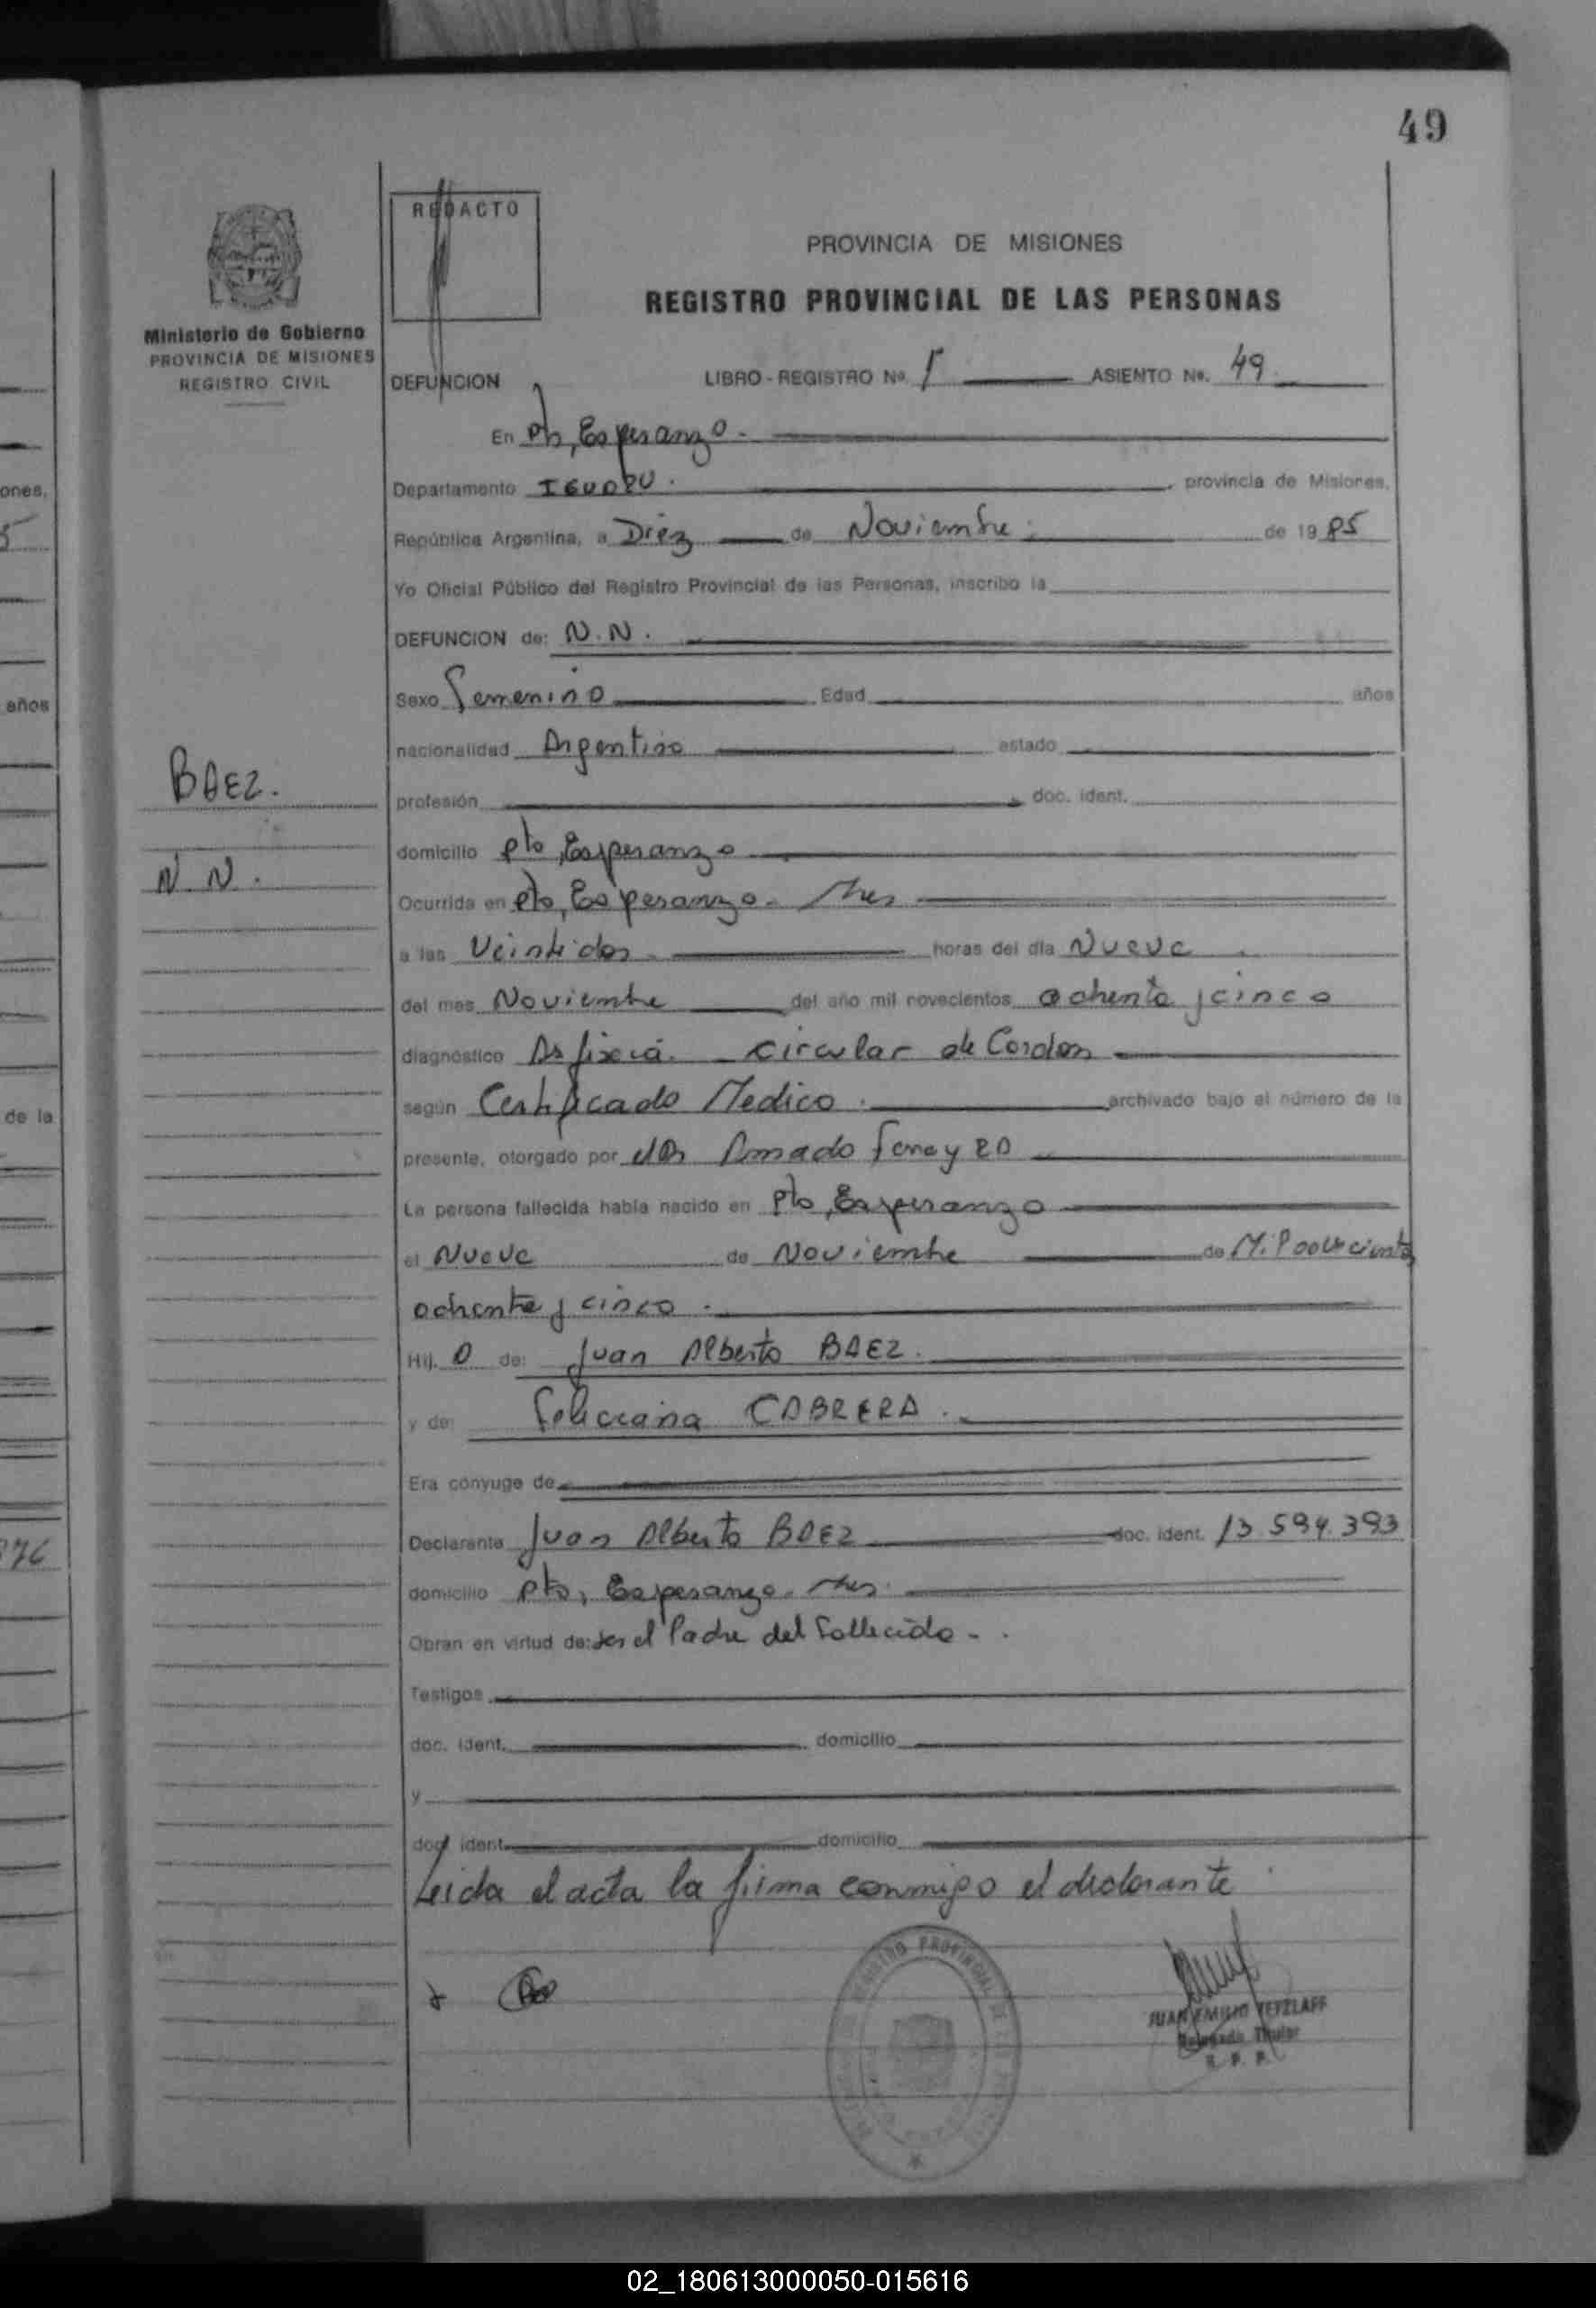 49
REDACTO
PROVINCIA DE MISIONES
REGISTRO PROVINCIAL DE LAS PERSONAS
Ministerio de Gobierno
PROVINCIA DE MISIONES
REGISTRO CIVIL
DEFUNCION LIBRO - REGISTRO No. I ASIENTO No. 49
En Pto, Esperanza.
Departamento IGUAZU. provincia de Misiones,
República Argentina, a Diez de Noviembre. de 1985
Yo Oficial Público del Registro Provincial de las Personas, inscribo la
DEFUNCION de: N.N.
Sexo Femenino Edad años
nacionalidad Argentina estado
BAEZ.
profesión doc. ident.
domicilio Pto, Esperanza
N N.
Ocurrida en Pto, Esperanza. Mnes
a las Veintidos horas del día Nueve
del mes Noviembre del año mil novecientos ochenta y cinco
diagnóstico Asfixia. Circular de Cordon
según Certificado Medico. archivado bajo el número de la
presente, otorgado por el Dr Amado
La persona fallecida había nacido en Pto, Esperanza
el Nueve de Noviembre de Mil novecientos
ochenta y cinco.
Hij. o de: Juan Alberto BAEZ.
y de: Feliciana CABRERA.
Era cónyuge de
Declarante Juan Alberto BAEZ doc. ident. 13 594 393
domicilio Pto, Esperanza. Mnes.
Obran en virtud de: ser el Padre del Fallecido.
Testigos
doc. ident. domicilio
y
doc. ident. domicilio
Leida el acta la firma conmigo el declarante.
REGISTRO PROVINCIAL DE
JUAN EMILIO TETZLAFF
Delegado Titular
R. P. P.
ones,
5
años
de la
376
02_180613000050-015616